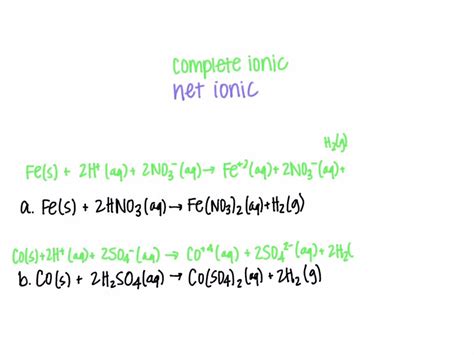 complete ionic
net ionic
H₂(g)
Fe(s) + 2H⁺ (aq) + 2NO₃⁻(aq) → Fe⁺²(aq) + 2NO₃⁻(aq) +
a. Fe(s) + 2HNO₃(aq) → Fe(NO₃)₂(aq) + H₂(g)
Co(s) + 2H⁺(aq) + 2SO₄⁻(aq) → Co⁺⁴(aq) + 2SO₄²⁻(aq) + 2H₂(
b. Co(s) + 2H₂SO₄(aq) → Co(SO₄)₂(aq) + 2H₂(g)